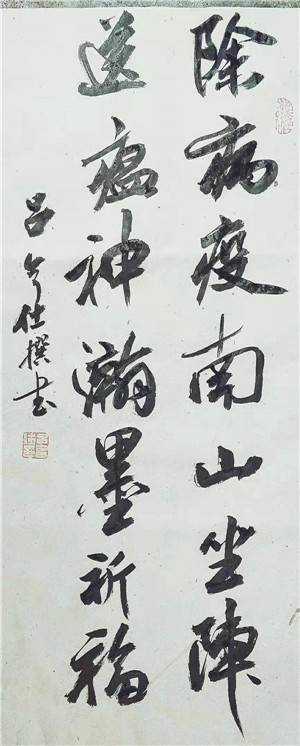 除病疫南山坐陣
送瘟神瀚墨祈福
吕今仕撰书